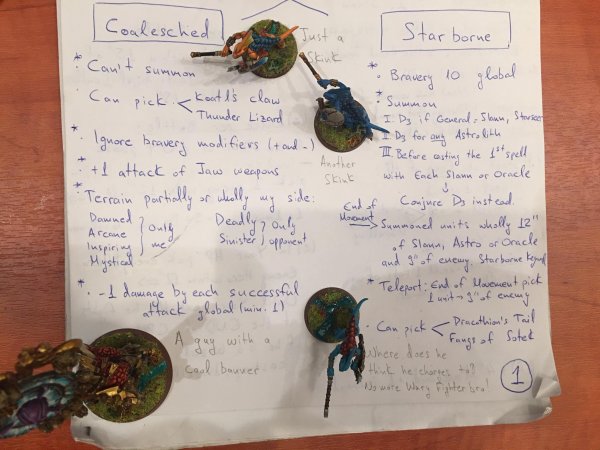 Coalesched
* Can't summon
Can pick < Koatl's claw
Thunder Lizard
* Ignore bravery modifiers (+ and -)
* +1 attack of Jaw weapons
* Terrain partially or wholly my side:
Damned
Arcane
Inspiring
Mystical
} Only me
Deadly
Sinister
} Only opponent
* -1 damage by each successful
attack global (min. 1)
A guy with a
cool banner
Just a
Skink
Another
Skink
Starborne
* Bravery 10 global
* Summon
I. D3 if General = Slann, Starseer
I. D3 for any Astrolith
III. Before casting the 1st spell
with Each Slann or Oracle
↓
Conjure D3 instead.
End of
Movement → Summoned units wholly 12"
of Slann, Astro or Oracle
and 9" of enemy. Starborne
* Teleport: End of Movement pick
1 unit → 9" of enemy
• Can pick < Dracothion's Tail
Fangs of Sotek
Where does he
think he charges to?
No more Wary Fighter bro!
1